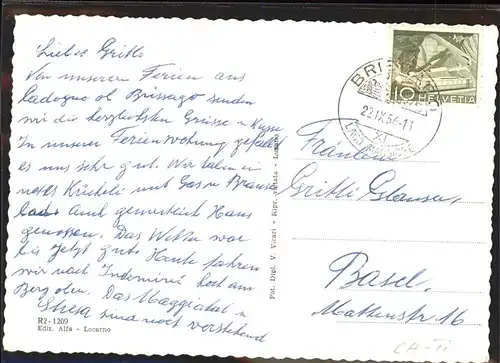 Liebes Gritli
Von unseren Ferien aus
Cadogno ob Brissago senden
wir die herzlichsten Grüsse u. Küsse
In unserer Ferienwohnung gefällt
es uns sehr gut. Wir haben ein
nettes Kücheli mit Gas u. Brause
Auch gemütlich Haus
genossen. Das Wetter war
bis jetzt gut. Heute fahren
wir nach Indemini hoch am
Berg oben. Das Maggiatal u.
Stresa sind noch vorstehend
R2-1209
Ediz. Alfa - Locarno
Fot. Digl. V. Vicari - Ripr. vietata - Locarno
10 HELVETIA
22.IX.54.-11
Fräulein
Gritli
Basel.
Mattenstr 16
CH-TI